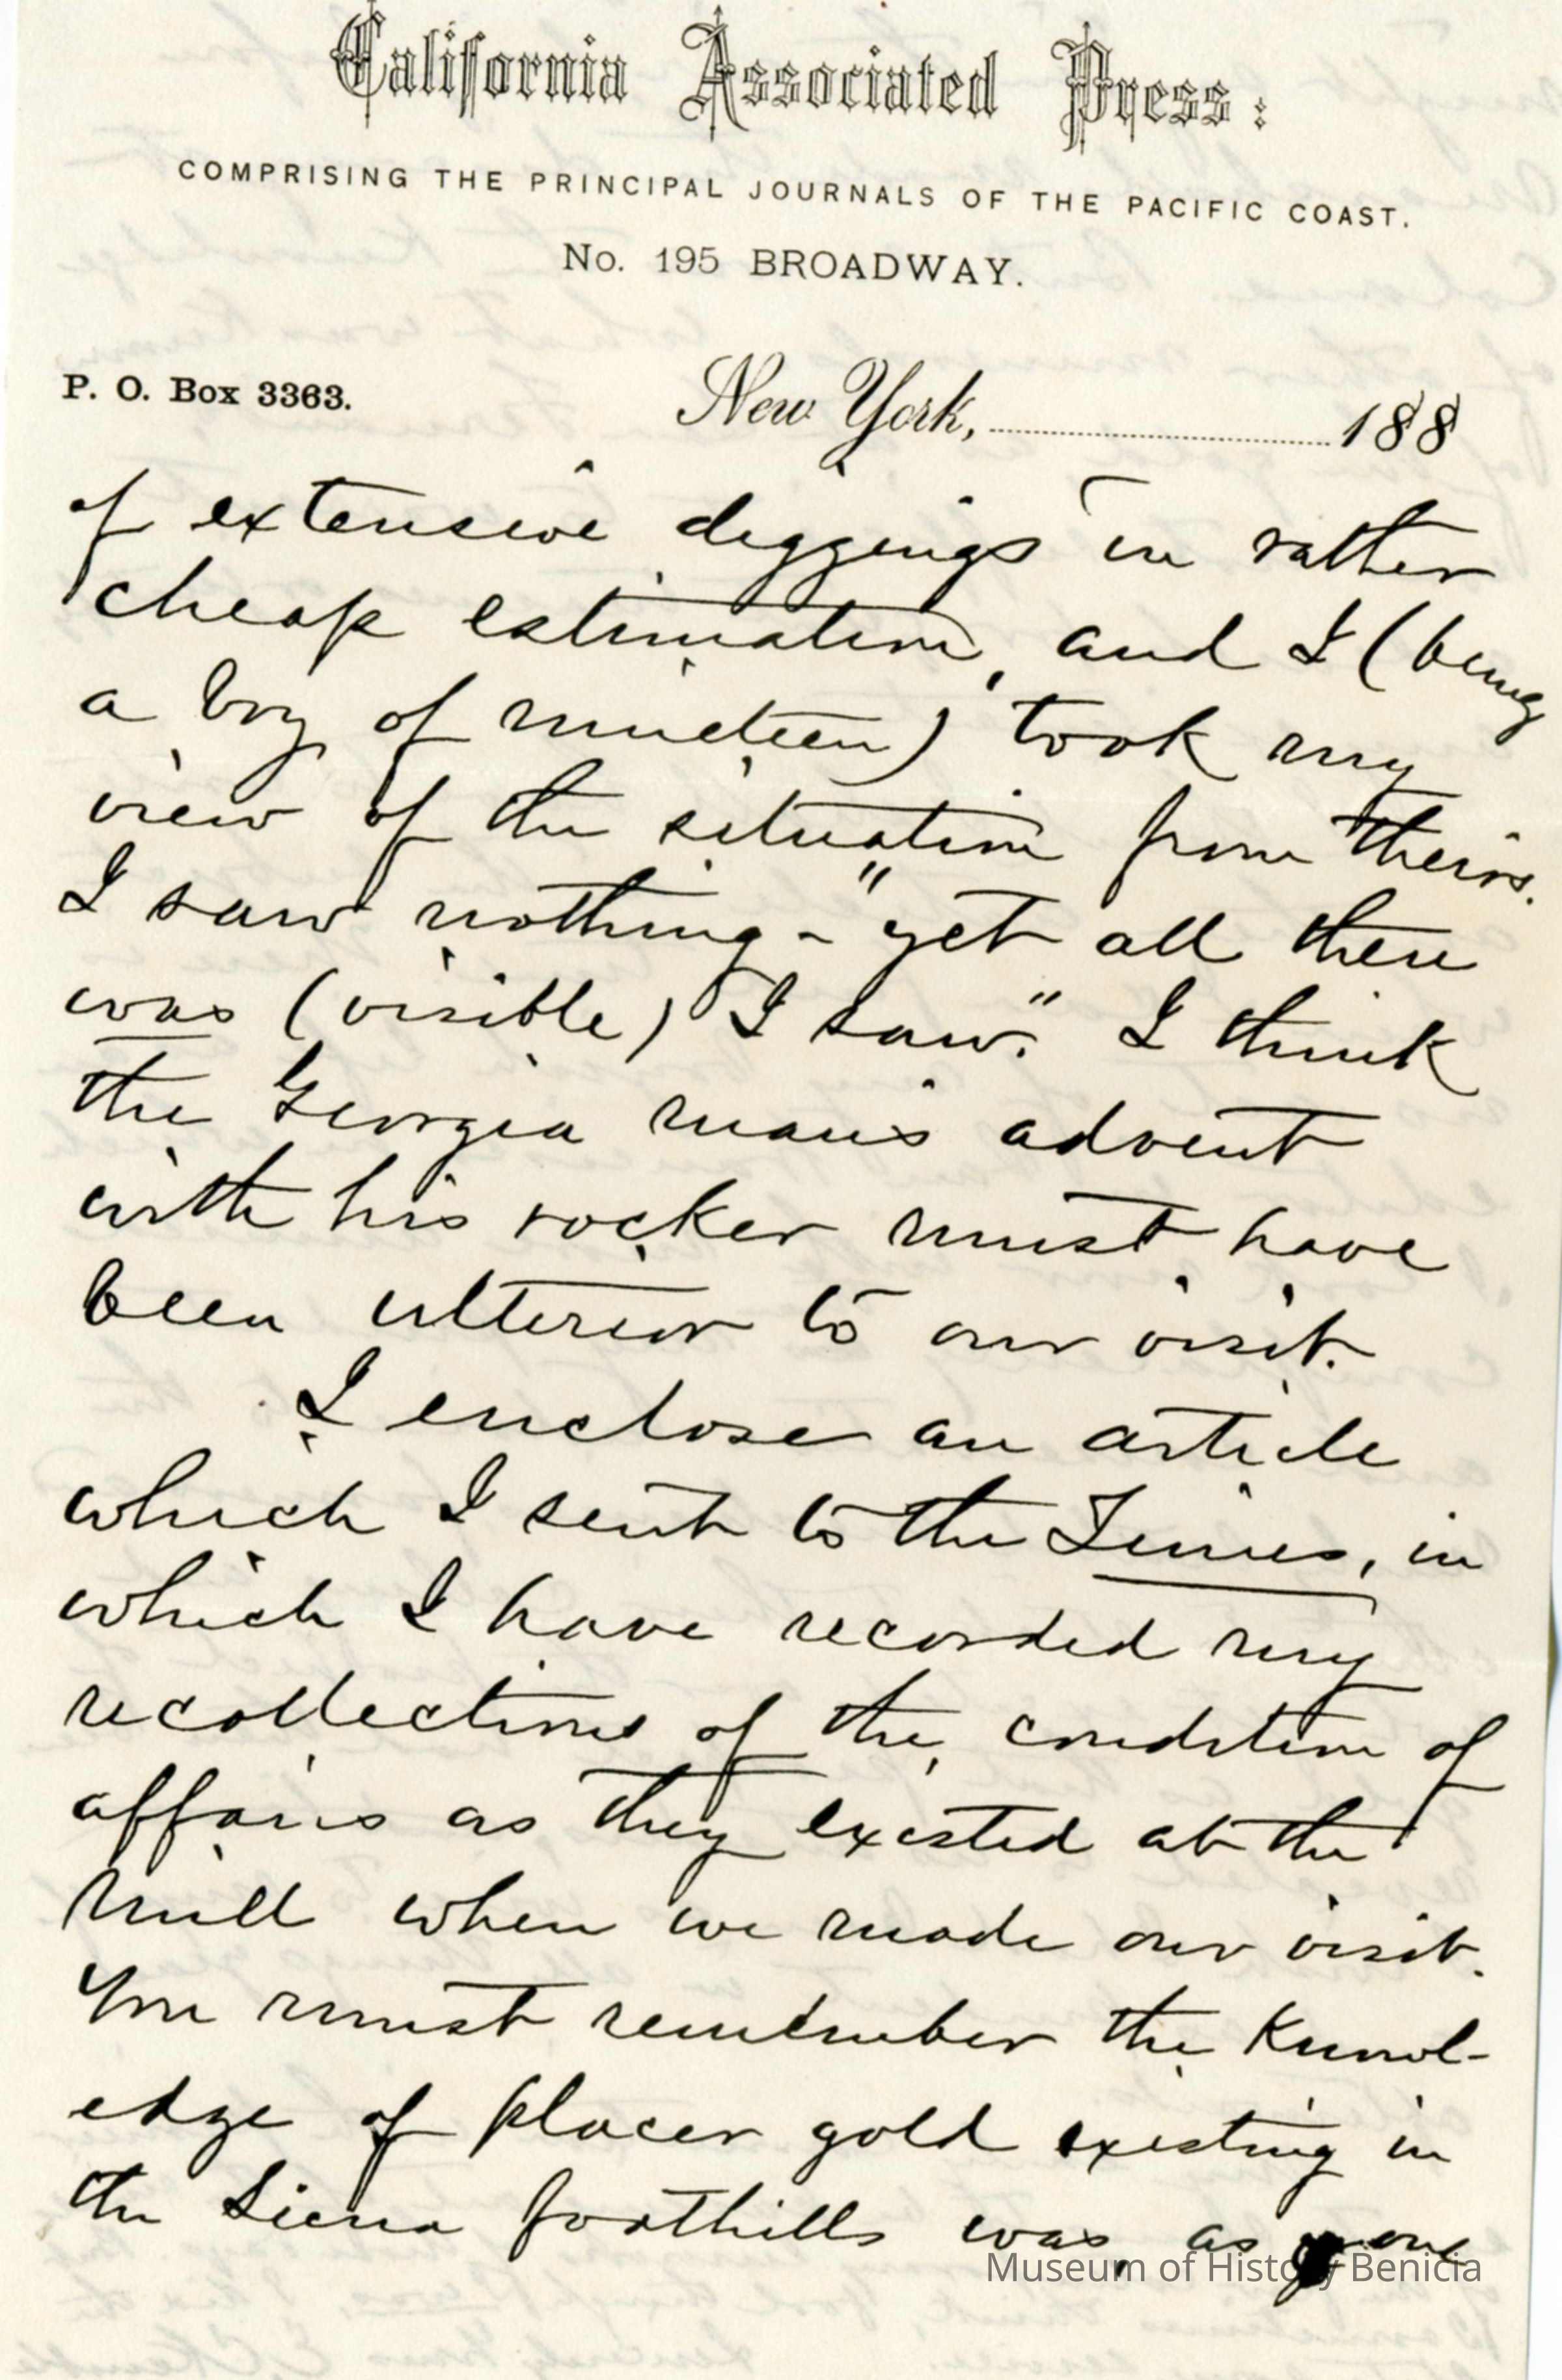 California Associated Press:
COMPRISING THE PRINCIPAL JOURNALS OF THE PACIFIC COAST.
No. 195 BROADWAY.
P. O. Box 3363.
New York, 188
of extensive diggings in rather
cheap estimation, and I (being
a boy of nineteen) took my
view of the situation from theirs.
I saw nothing - "yet all there
was (visible) I saw." I think
the Georgia man's advent
with his rocker must have
been ulterior to our visit.
I enclose an article
which I sent to the Times, in
which I have recorded my
recollections of the condition of
affairs as they existed at the
mill when we made our visit.
You must remember the knowl-
edge of placer gold existing in
the Sierra foothills was, as
Museum of History Benicia